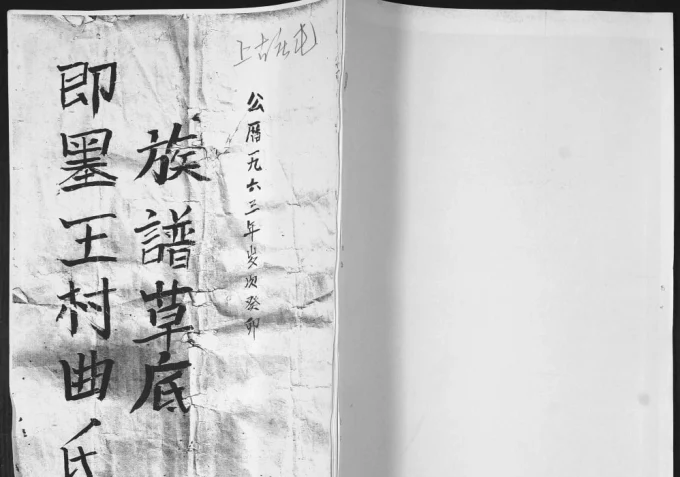 即墨王村曲氏
族譜草底
公曆一九六三年歲次癸卯